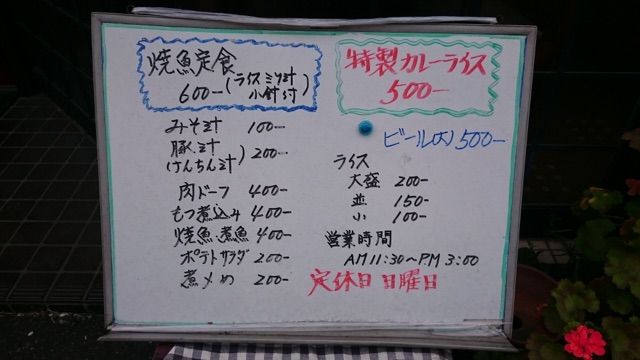 焼魚定食
600ー(ライスミソ汁
小針付)
みそ汁 100ー
豚汁
けんちん汁) 200ー
肉ドーフ 400ー
もつ煮込み 400ー
焼魚.煮魚 400ー
ポテトサラダ 200ー
煮〆め 200ー
特製カレーライス
500ー
ビール(大) 500ー
ライス
大盛 200ー
並 150ー
小 100ー
営業時間
AM 11:30〜P.M 3:00
定休日 日曜日